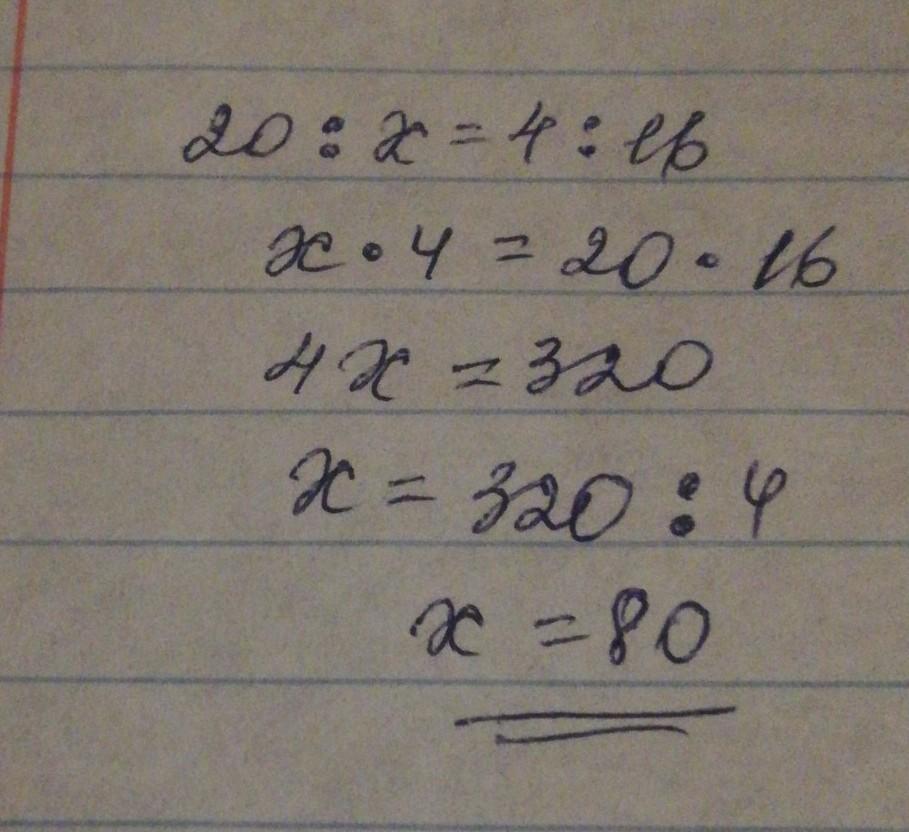 20 : x = 4 : 16
x · 4 = 20 · 16
4x = 320
x = 320 : 4
x = 80